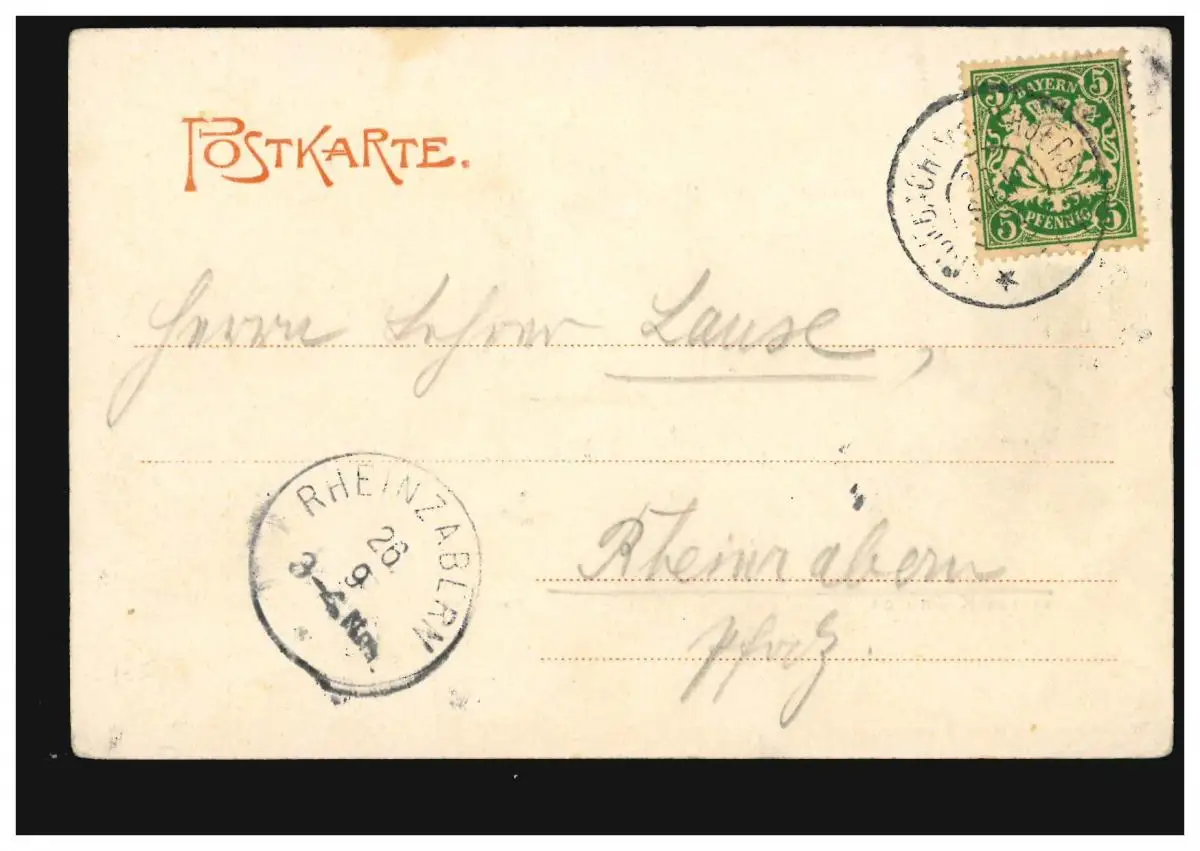 POSTKARTE.
5 BAYERN 5
5 PFENNIG 5
Herrn Lehrer Lause,
RHEINZABERN
26
9
3-4 Nm.
Rheinzabern
Pfalz.